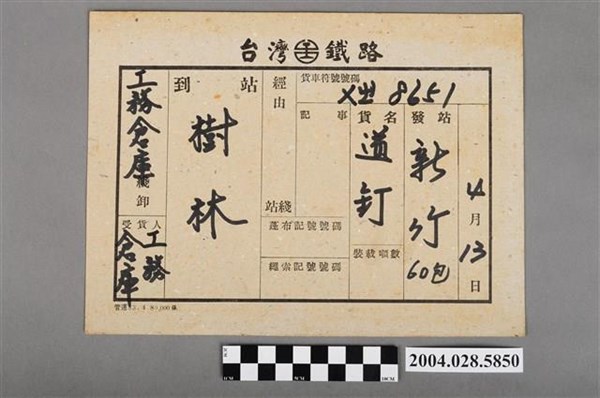 台灣鐵路
貨車符號號碼
8651
4月13日
發站
新竹
60包
貨名
道釘
裝載噸數
記事
經由
綫站
蓬布記號號碼
繩索記號號碼
到站
樹林
工務倉庫
綫卸
受貨人
工務
倉庫
2004.028.5850